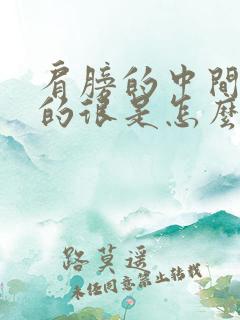 肩膀的中間
的很是怎麼
路莫遥
未经同意禁止转载